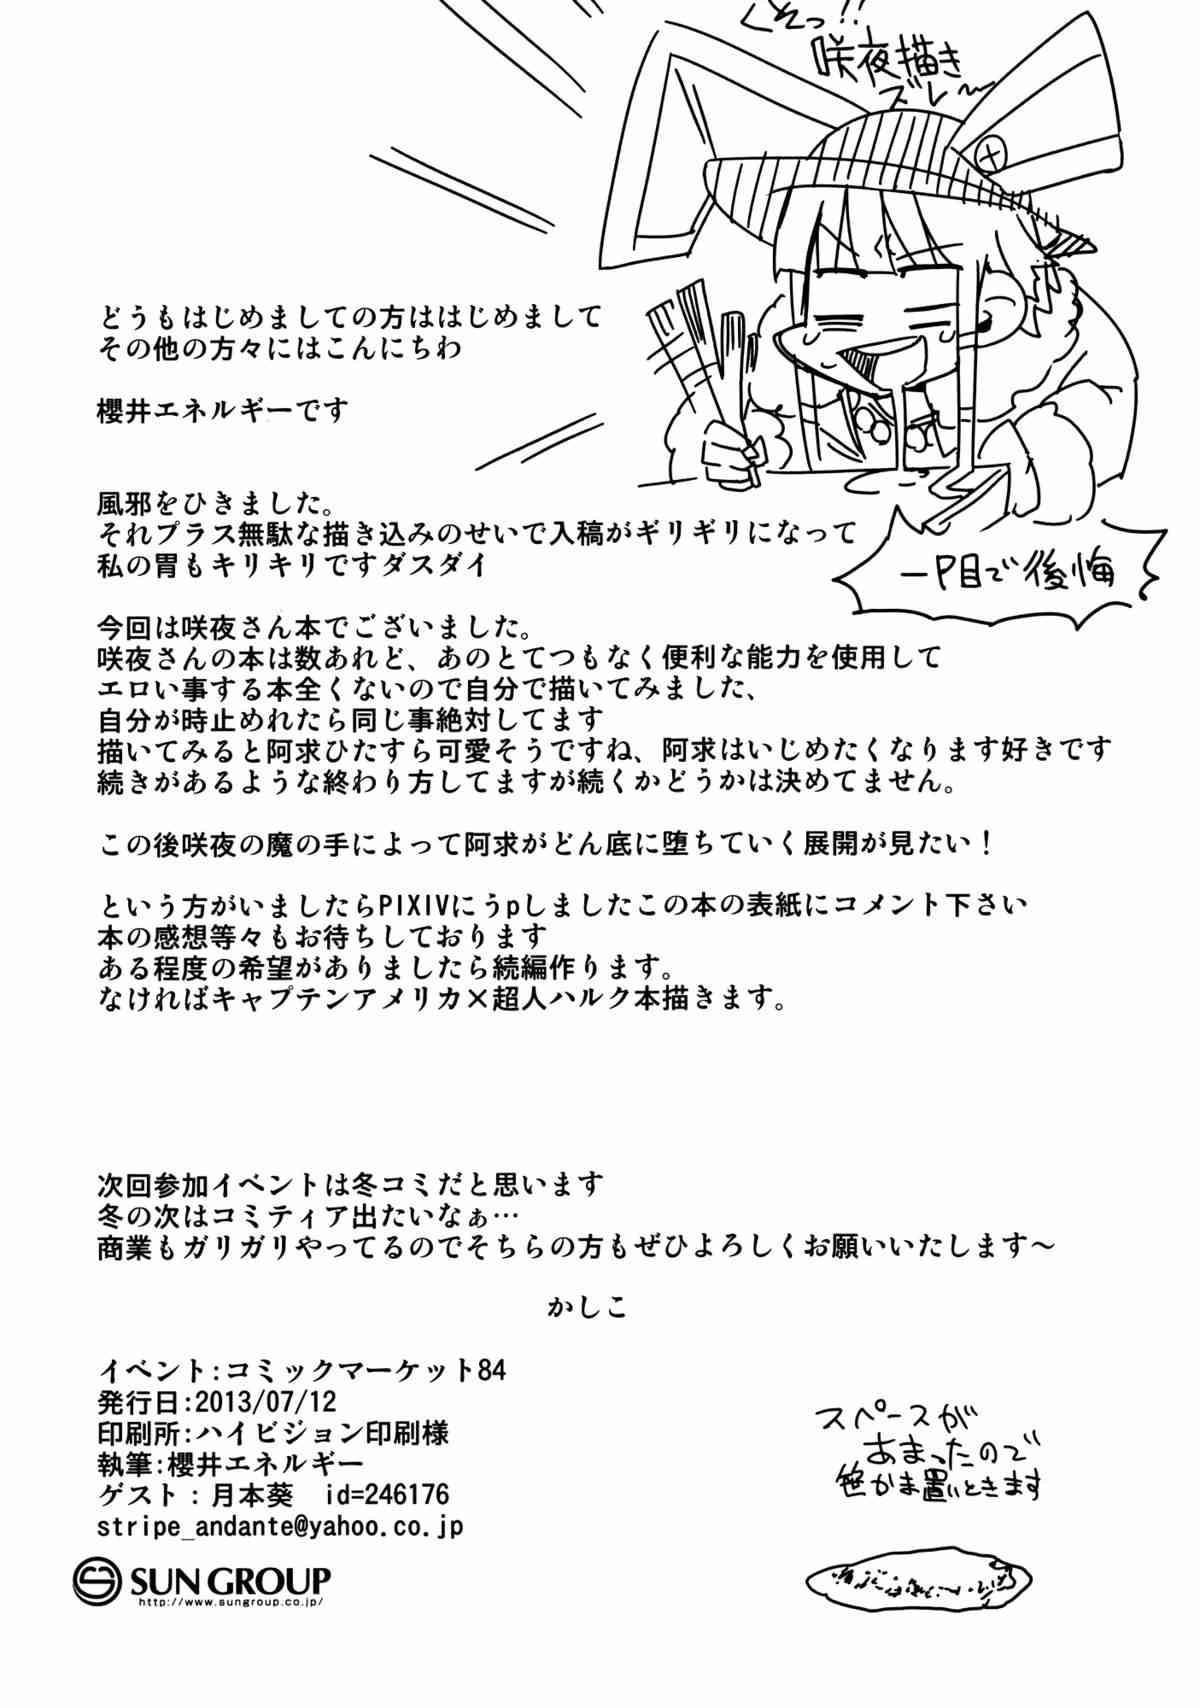 くれっ!!
咲夜描き
ズレ〜
どうもはじめましての方ははじめまして
その他の方々にはこんにちわ
櫻井エネルギーです
風邪をひきました。
それプラス無駄な描き込みのせいで入稿がギリギリになって
私の胃もキリキリですダスダイ
一P目で後悔
今回は咲夜さん本でございました。
咲夜さんの本は数あれど、あのとてつもなく便利な能力を使用して
エロい事する本全くないので自分で描いてみました、
自分が時止めれたら同じ事絶対してます
描いてみると阿求ひたすら可愛そうですね、阿求はいじめたくなります好きです
続きがあるような終わり方してますが続くかどうかは決めてません。
この後咲夜の魔の手によって阿求がどん底に堕ちていく展開が見たい！
という方がいましたらPIXIVにうpしましたこの本の表紙にコメント下さい
本の感想等々もお待ちしております
ある程度の希望がありましたら続編作ります。
なければキャプテンアメリカ×超人ハルク本描きます。
次回参加イベントは冬コミだと思います
冬の次はコミティア出たいなぁ…
商業もガリガリやってるのでそちらの方もぜひよろしくお願いいたします～
かしこ
イベント:コミックマーケット84
発行日:2013/07/12
印刷所:ハイビジョン印刷様
執筆:櫻井エネルギー
ゲスト：月本葵　id=246176
stripe_andante@yahoo.co.jp
SUN GROUP
http://www.sungroup.co.jp/
スペースが
あまったので
笹かま置いときます